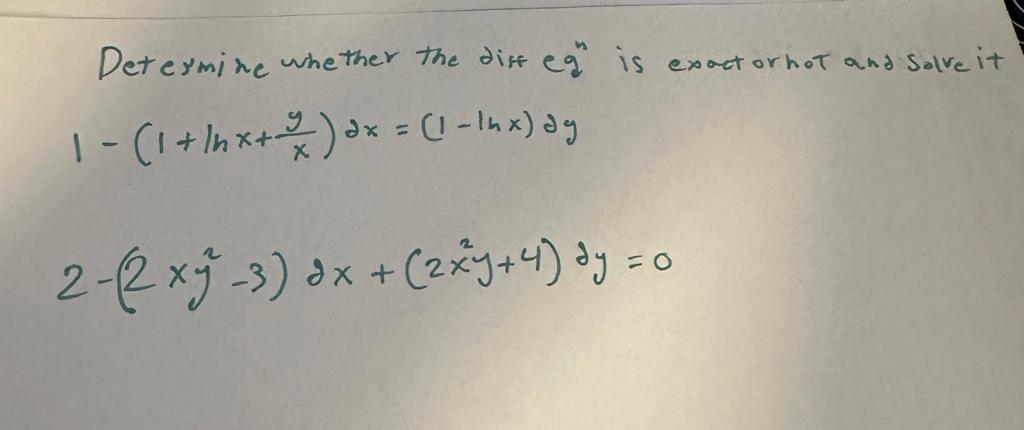 Determine whether the diff eqⁿ is exact or not and solve it
1 - (1 + ln x + y/x) dx = (1 - ln x) dy
2 - (2xy² - 3) dx + (2x²y + 4) dy = 0